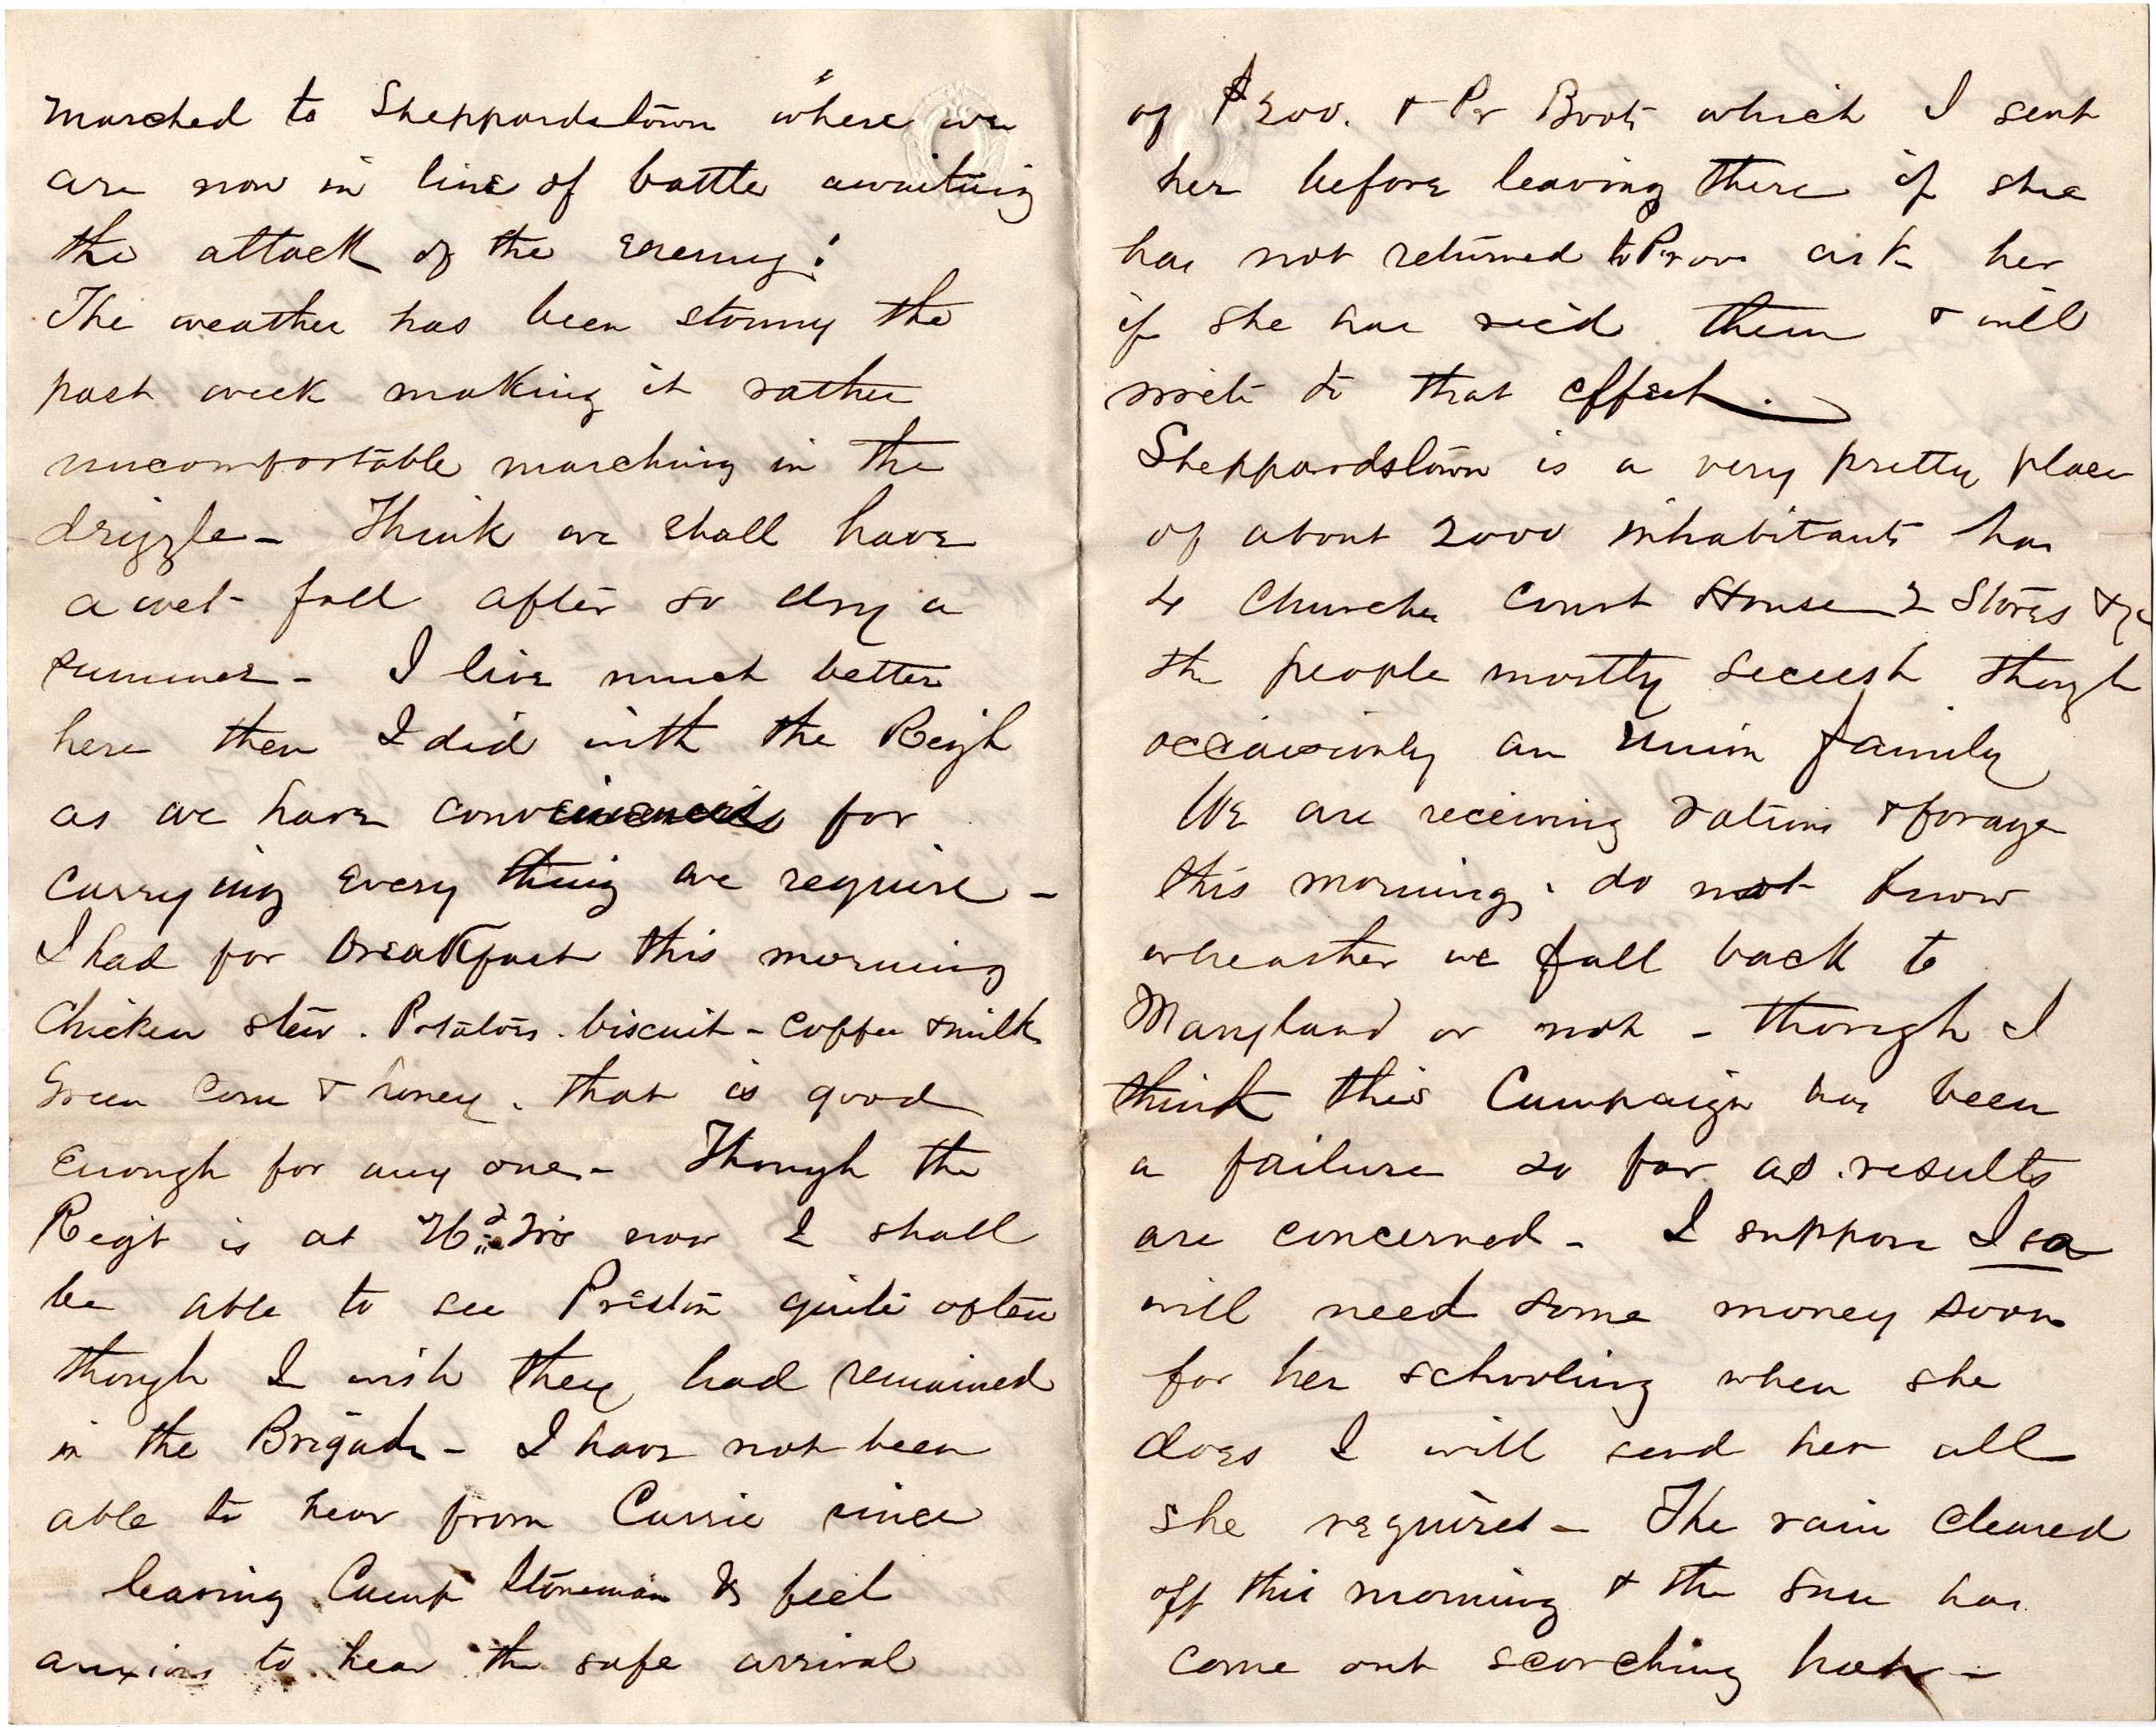 marched to Sheppardstown where we
are now in line of battle awaiting
the attack of the enemy.
The weather has been stormy the
past week making it rather
uncomfortable marching in the
drizzle - Think we shall have
a wet fall after so dry a
summer - I live much better
here then I did with the Regt
as we have for
carrying every thing we require -
I had for breakfast this morning
Chicken stew. Potatoes. biscuit - coffee & milk
Green Corn & honey. that is good
enough for any one - Though the
Regt is at now I shall
be able to see Preston quite often
though I wish they had remained
in the Brigade - I have not been
able to hear from Carrie since
leaving Camp Stoneman & feel
anxious to hear the safe arrival
of $200. & Pr Boots which I sent
her before leaving there if she
has not returned to Prov ask her
if she has rec'd them & will
write to that effect.
Sheppardstown is a very pretty place
of about 2000 inhabitants has
4 Churches Court House 2 Stores &c
the people mostly secesh though
occaisionly an Union family
We are receiving rations & forage
this morning. do not know
wheather we fall back to
Maryland or not - though I
think this Campaign has been
a failure so far as results
are concerned - I suppose Isa
will need some money soon
for her schooling when she
does I will send her all
she requires - The rain cleared
off this morning & the sun has
come out scorching hot -